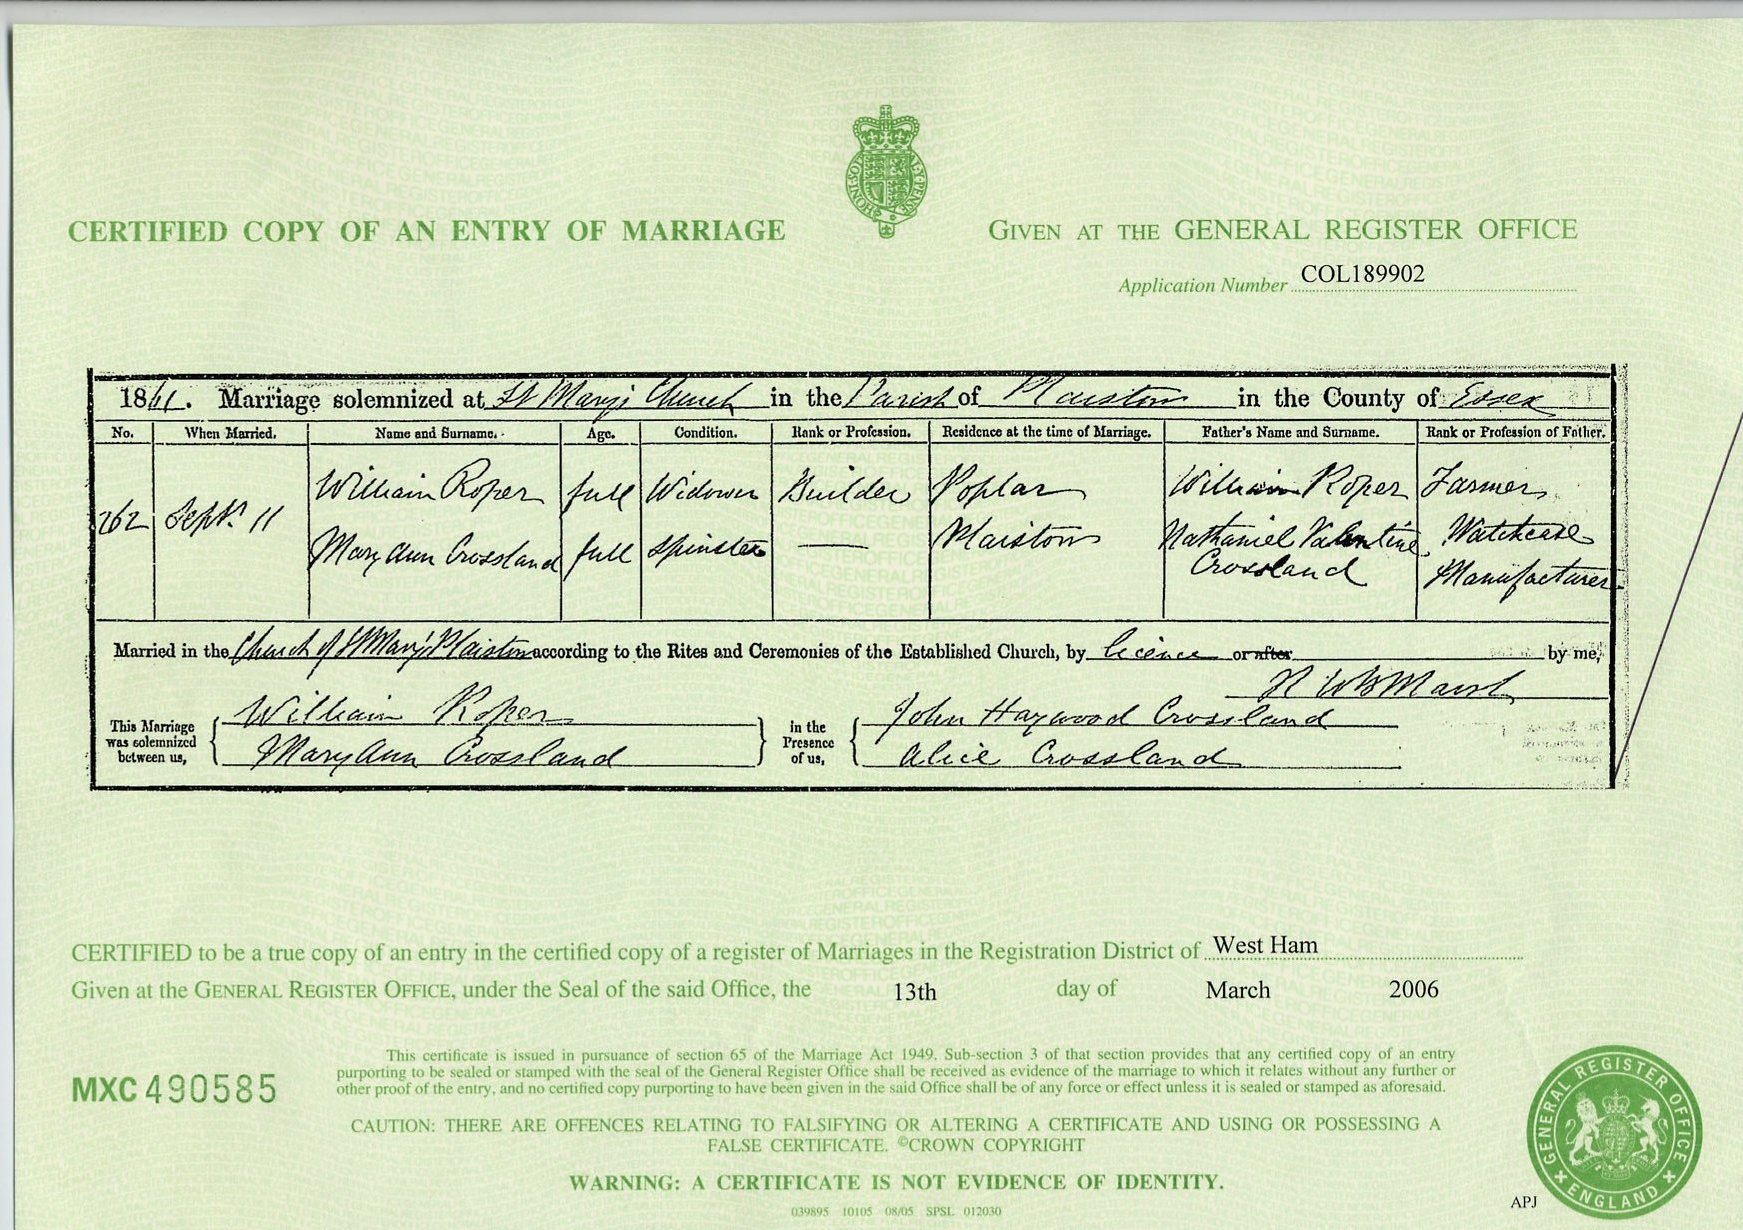 CERTIFIED COPY OF AN ENTRY OF MARRIAGE
GIVEN AT THE GENERAL REGISTER OFFICE
Application Number COL189902
1861. Marriage solemnized at St Mary's Church in the Parish of Plaistow in the County of Essex
No. When Married. Name and Surname. Age. Condition. Rank or Profession. Residence at the time of Marriage. Father's Name and Surname. Rank or Profession of Father.
262 Septr. 11 William Roper full Widower Builder Poplar William Roper Farmer
Mary Ann Crossland full Spinster — Plaistow Nathaniel Valentine Crossland Watchcase Manufacturer
Married in the Church of St Mary's Plaistow according to the Rites and Ceremonies of the Established Church, by licence or after by me,
Marsh
This Marriage was solemnized between us, William Roper
Mary Ann Crossland
in the Presence of us, John Haywood Crossland
Alice Crossland
CERTIFIED to be a true copy of an entry in the certified copy of a register of Marriages in the Registration District of West Ham
Given at the GENERAL REGISTER OFFICE, under the Seal of the said Office, the 13th day of March 2006
MXC 490585
This certificate is issued in pursuance of section 65 of the Marriage Act 1949. Sub-section 3 of that section provides that any certified copy of an entry
purporting to be sealed or stamped with the seal of the General Register Office shall be received as evidence of the marriage to which it relates without any further or
other proof of the entry, and no certified copy purporting to have been given in the said Office shall be of any force or effect unless it is sealed or stamped as aforesaid.
CAUTION: THERE ARE OFFENCES RELATING TO FALSIFYING OR ALTERING A CERTIFICATE AND USING OR POSSESSING A
FALSE CERTIFICATE. ©CROWN COPYRIGHT
WARNING: A CERTIFICATE IS NOT EVIDENCE OF IDENTITY.
039895 10105 08/05 SPSL 012030
APJ
GENERAL REGISTER OFFICE
ENGLAND